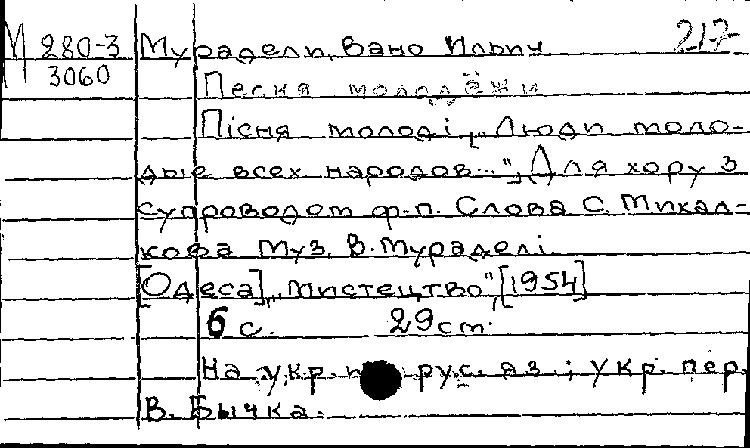 М 280-3
3060
217
Мурадели, Вано Ильич
Песня молодёжи
Пісня молоді „Люди моло-
дые всех народов..." Для хору з
супроводом ф.-п. Слова С. Михал-
кова Муз. В. Мураделі
[Одеса] „Мистецтво", [1954]
6 с. 29 cm.
На укр. рус. яз.; укр. пер.
В. Бычка.